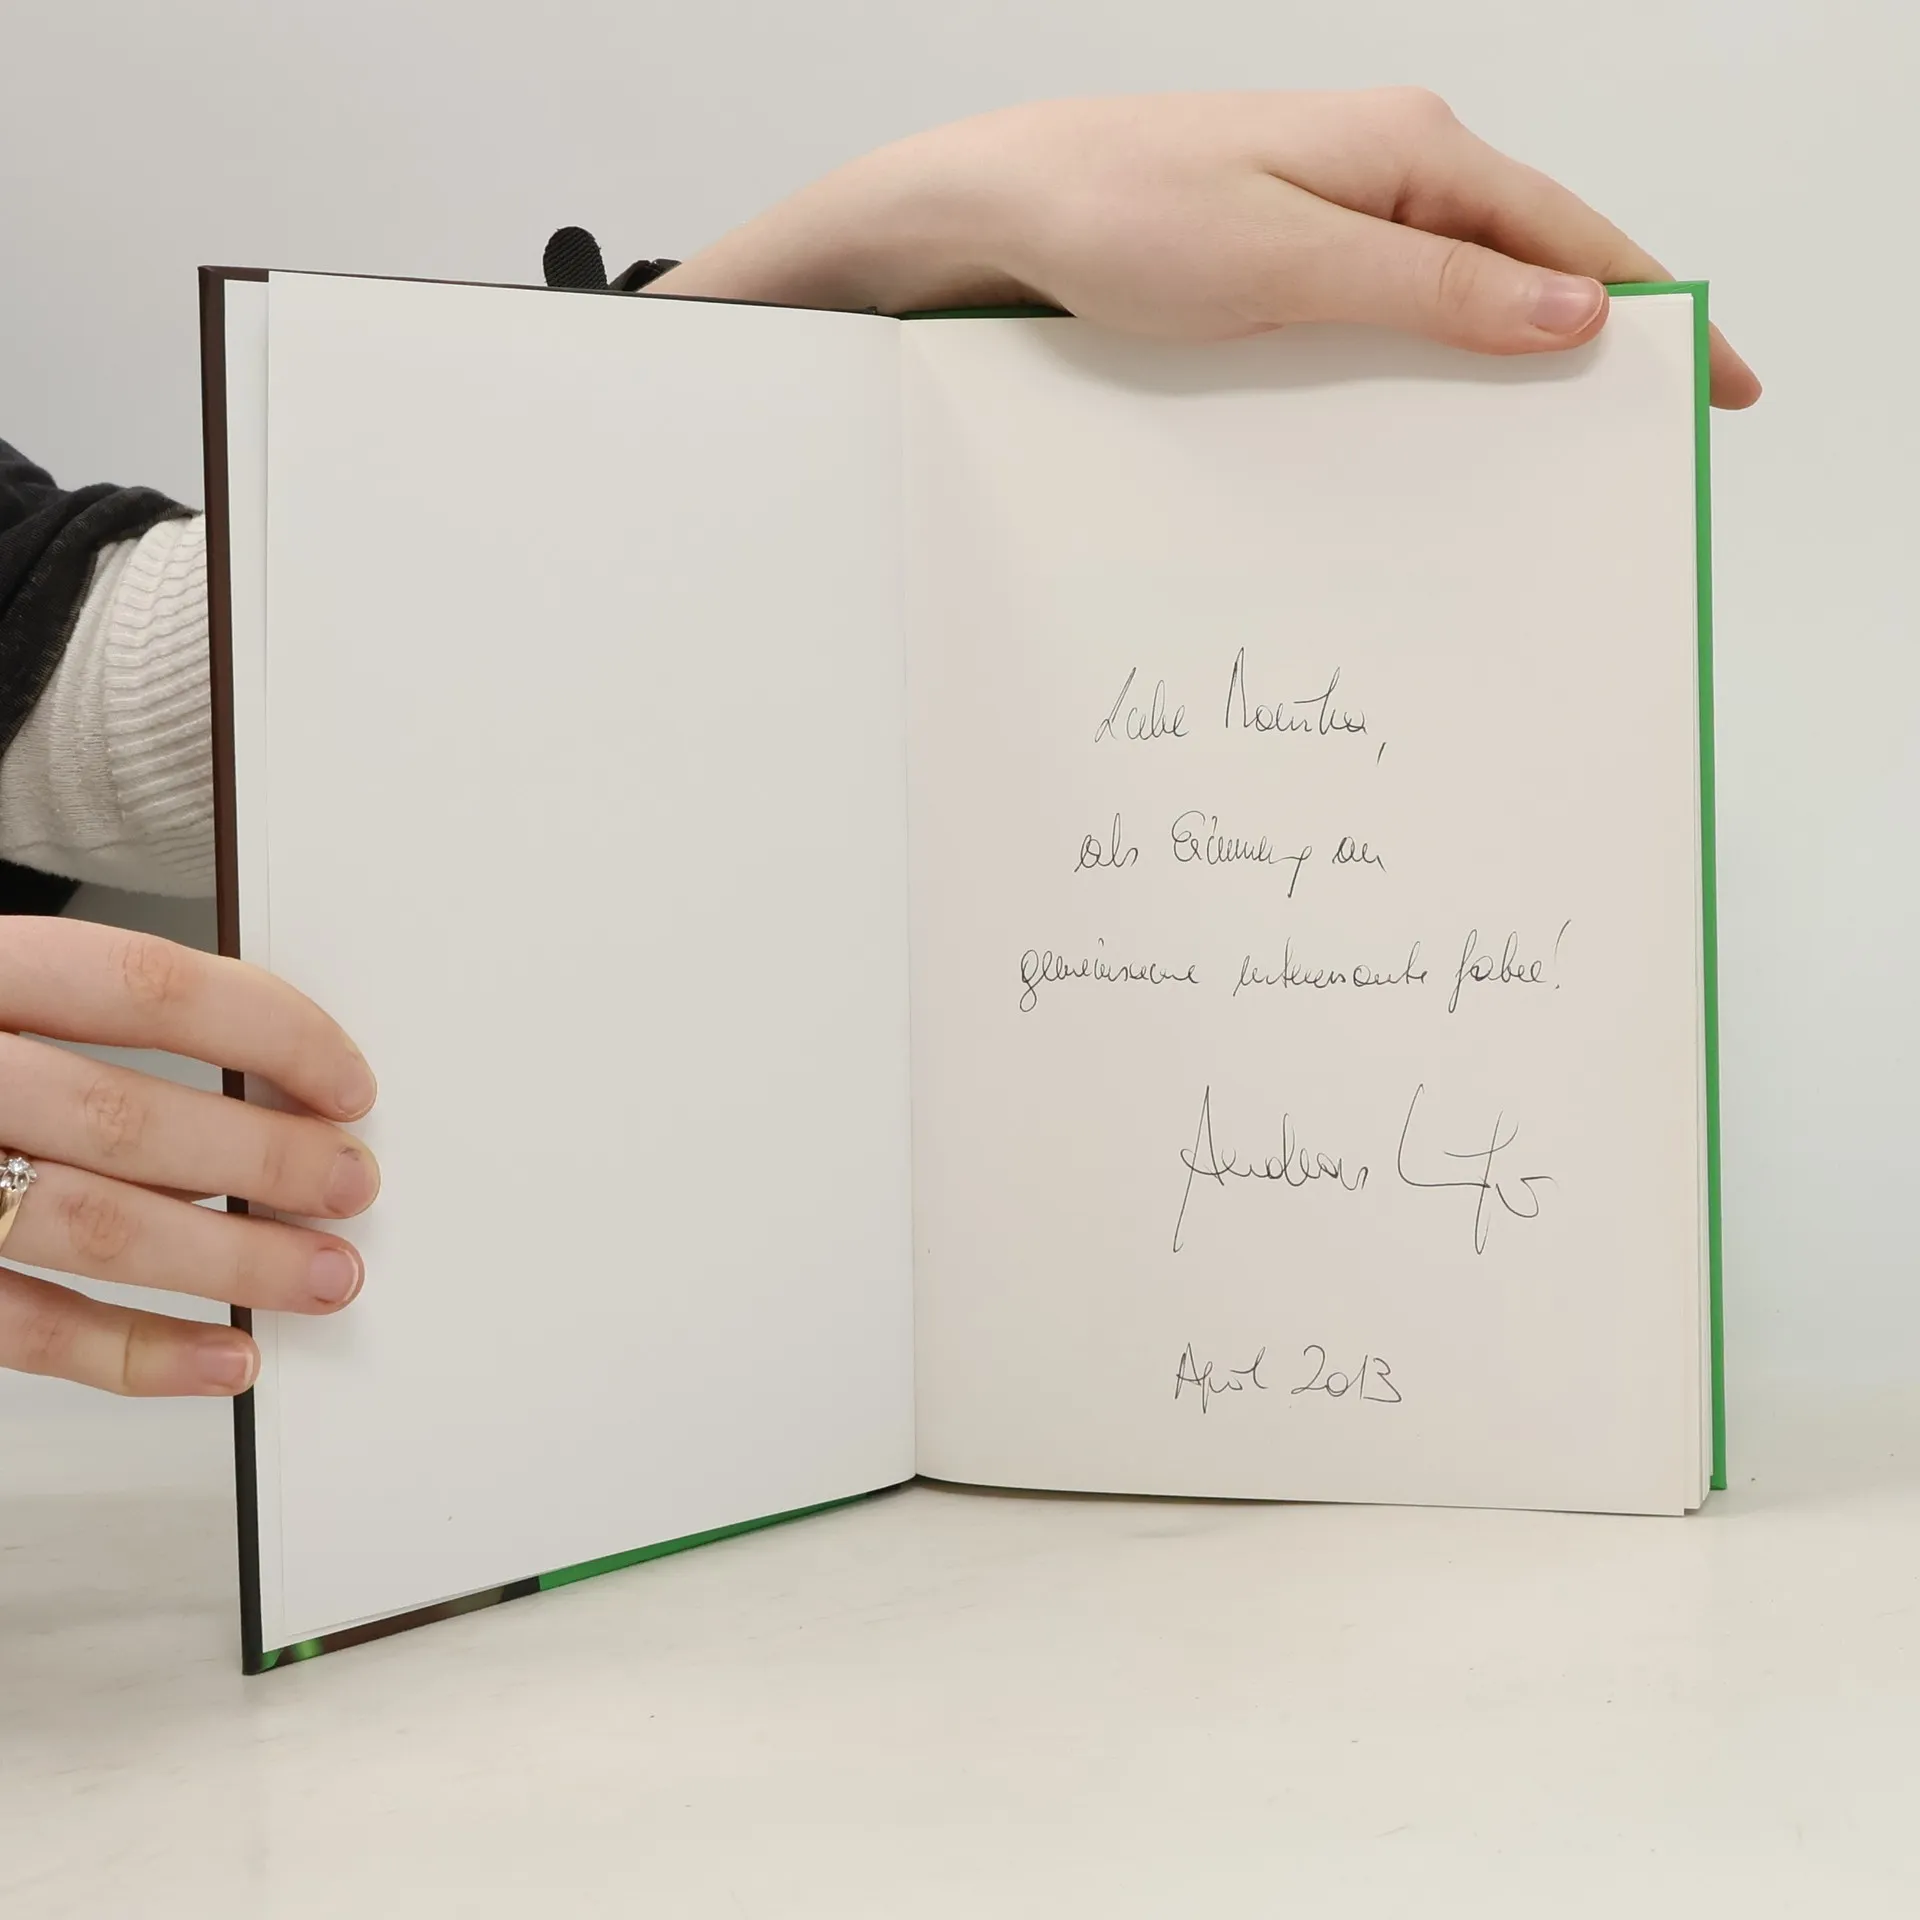 Liebe
als Erinnerung an
gemeinsame interessante Jahre!
Andreas
April 2013